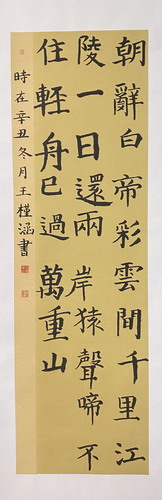 朝辭白帝彩雲間千里江
陵一日還兩岸猿聲啼不
住輕舟已過萬重山
時在辛丑冬月王槿涵書